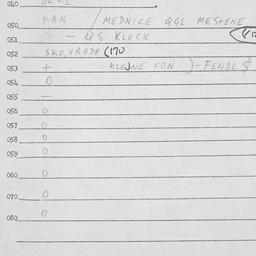 040
050 MEDNICE QGL MESTENE
051 - QS KLECK
052 SKO, VRODE (170
053 + KLEJNE FON ) - FENDL $
054 0
055 -
056 0
057 0
058 0
059 0
060 0
070 0
080 0